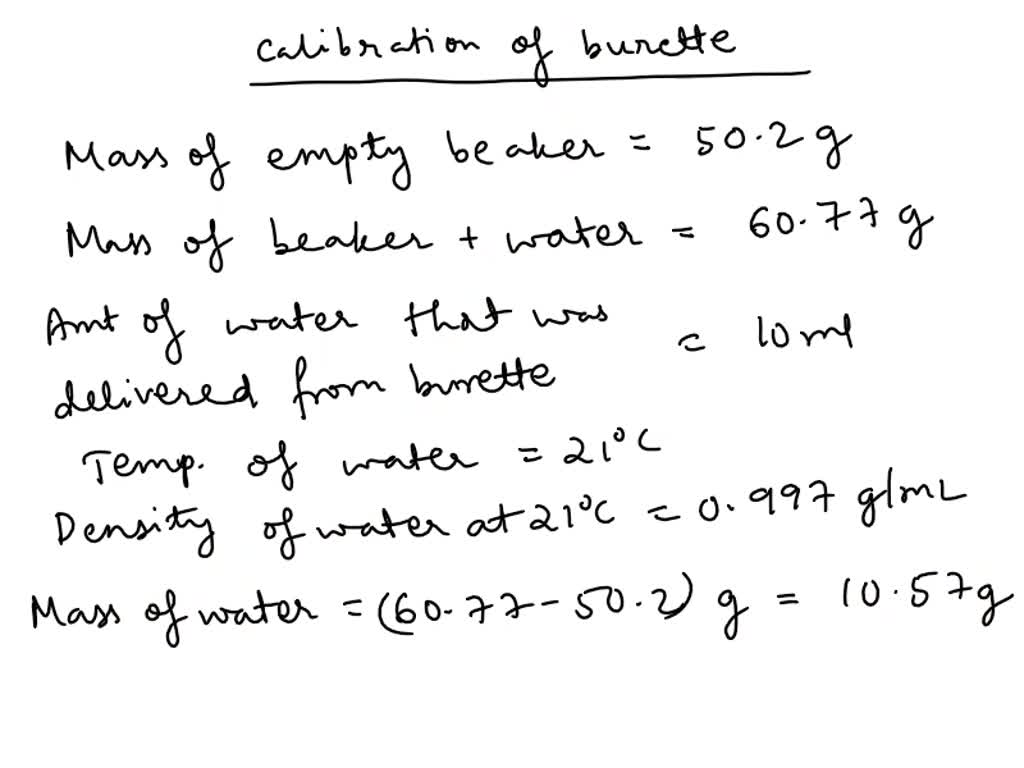 Calibration of burette
Mass of empty beaker = 50.2 g
Mass of beaker + water = 60.77 g
Amt of water that was
delivered from burette = 10 ml
Temp. of water = 21°C
Density of water at 21°C = 0.997 g/mL
Mass of water = (60.77-50.2) g = 10.57g